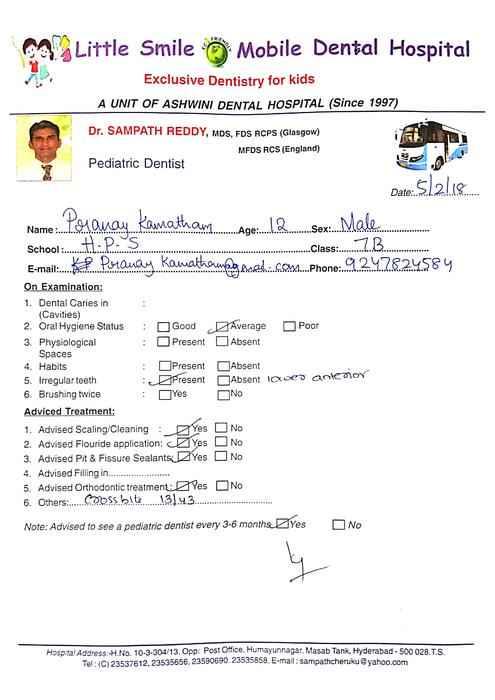 Little Smile Mobile Dental Hospital
ECO FRIENDLY
Exclusive Dentistry for kids
A UNIT OF ASHWINI DENTAL HOSPITAL (Since 1997)
Dr. SAMPATH REDDY, MDS, FDS RCPS (Glasgow)
MFDS RCS (England)
Pediatric Dentist
Date: 5/2/18
Name: Poranay Kamatham Age: 12 Sex: Male
School: H.P.S Class: 7B
E-mail: Poranay Kamatham@gmail.com Phone: 9247824584
On Examination:
1. Dental Caries in :
(Cavities)
2. Oral Hygiene Status : Good Average Poor
3. Physiological : Present Absent
Spaces
4. Habits : Present Absent
5. Irregular teeth : Present Absent lower anterior
6. Brushing twice : Yes No
Adviced Treatment:
1. Advised Scaling/Cleaning : Yes No
2. Advised Flouride application: Yes No
3. Advised Pit & Fissure Sealants: Yes No
4. Advised Filling in
5. Advised Orthodontic treatment: Yes No
6. Others: Crossbite 13/43
Note: Advised to see a pediatric dentist every 3-6 months Yes No
Hospital Address:-H.No. 10-3-304/13, Opp: Post Office, Humayunnagar, Masab Tank, Hyderabad - 500 028.T.S.
Tel : (C) 23537612, 23535656, 23590690. 23535858, E-mail : sampathcheruku@yahoo.com